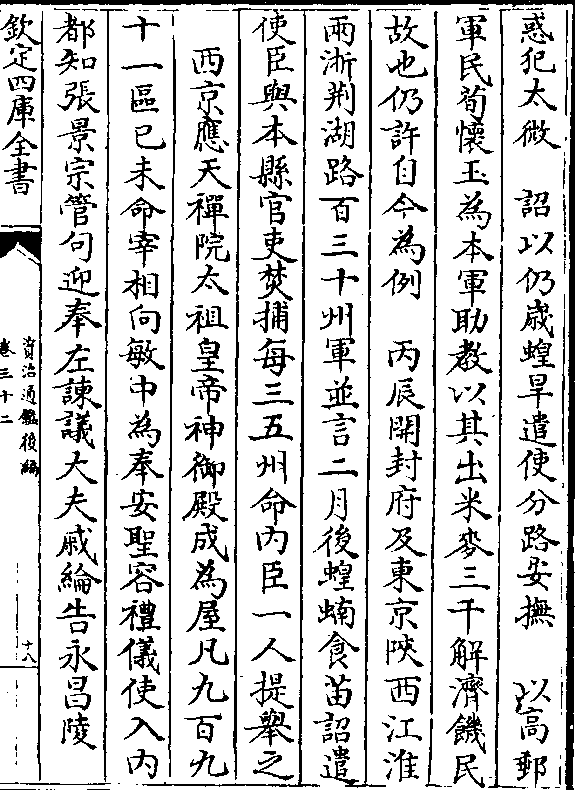 惑犯太微　詔以仍歲蝗旱遣使分路安撫　以高郵
軍民荀懷玉為本軍助教以其出米麥三千斛濟饑民
故也仍許自今為例　丙辰開封府及東京陜西江淮
兩浙荆湖路百三十州軍並言二月後蝗蝻食苗詔遣
使臣與本縣官吏焚捕每三五州命内臣一人提舉之
西京應天禪院太祖皇帝神御殿成為屋凡九百九
十一區已未命宰相向敏中為奉安聖容禮儀使入内
都知張景宗管句迎奉左諫議大夫戚綸告永昌陵
欽定四庫全書
資治通鑑後編
卷三十二
十八